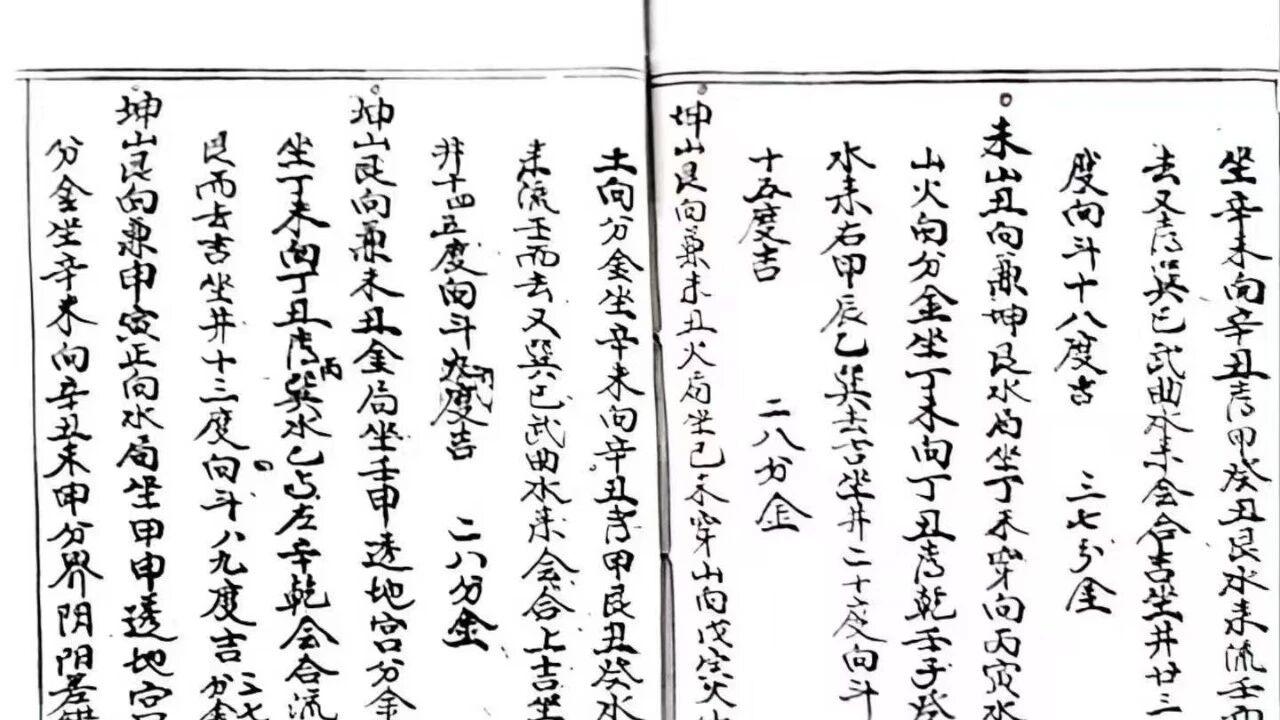 坐辛未向辛丑癸甲癸丑艮水来流壬而
去又巽巳武曲水来会合吉坐井廿三
度向斗十八度吉 三七分金
未山丑向兼坤艮水局坐丁未穿向丙寅水
山火向分金坐丁未向丁丑乾壬子癸
水来右甲辰乙巽去吉坐井二十度向斗
十五度吉 二八分金
坤山艮向兼未丑火局坐己未穿山向戊寅火
土向分金坐辛未向辛丑甲艮丑癸水
来流壬而去又巽巳武曲水来会合上吉坐
井十四五度向斗九度吉 二八分金
坤山艮向兼未丑金局坐壬申透地宫分金
坐丁未向丁丑丙巽水乙左辛乾会合流
艮而去吉坐井十三度向斗八九度吉 三七分金
坤山艮向兼申寅正向水局坐甲申透地宫
分金坐辛未向辛丑未申分界阴阳差错